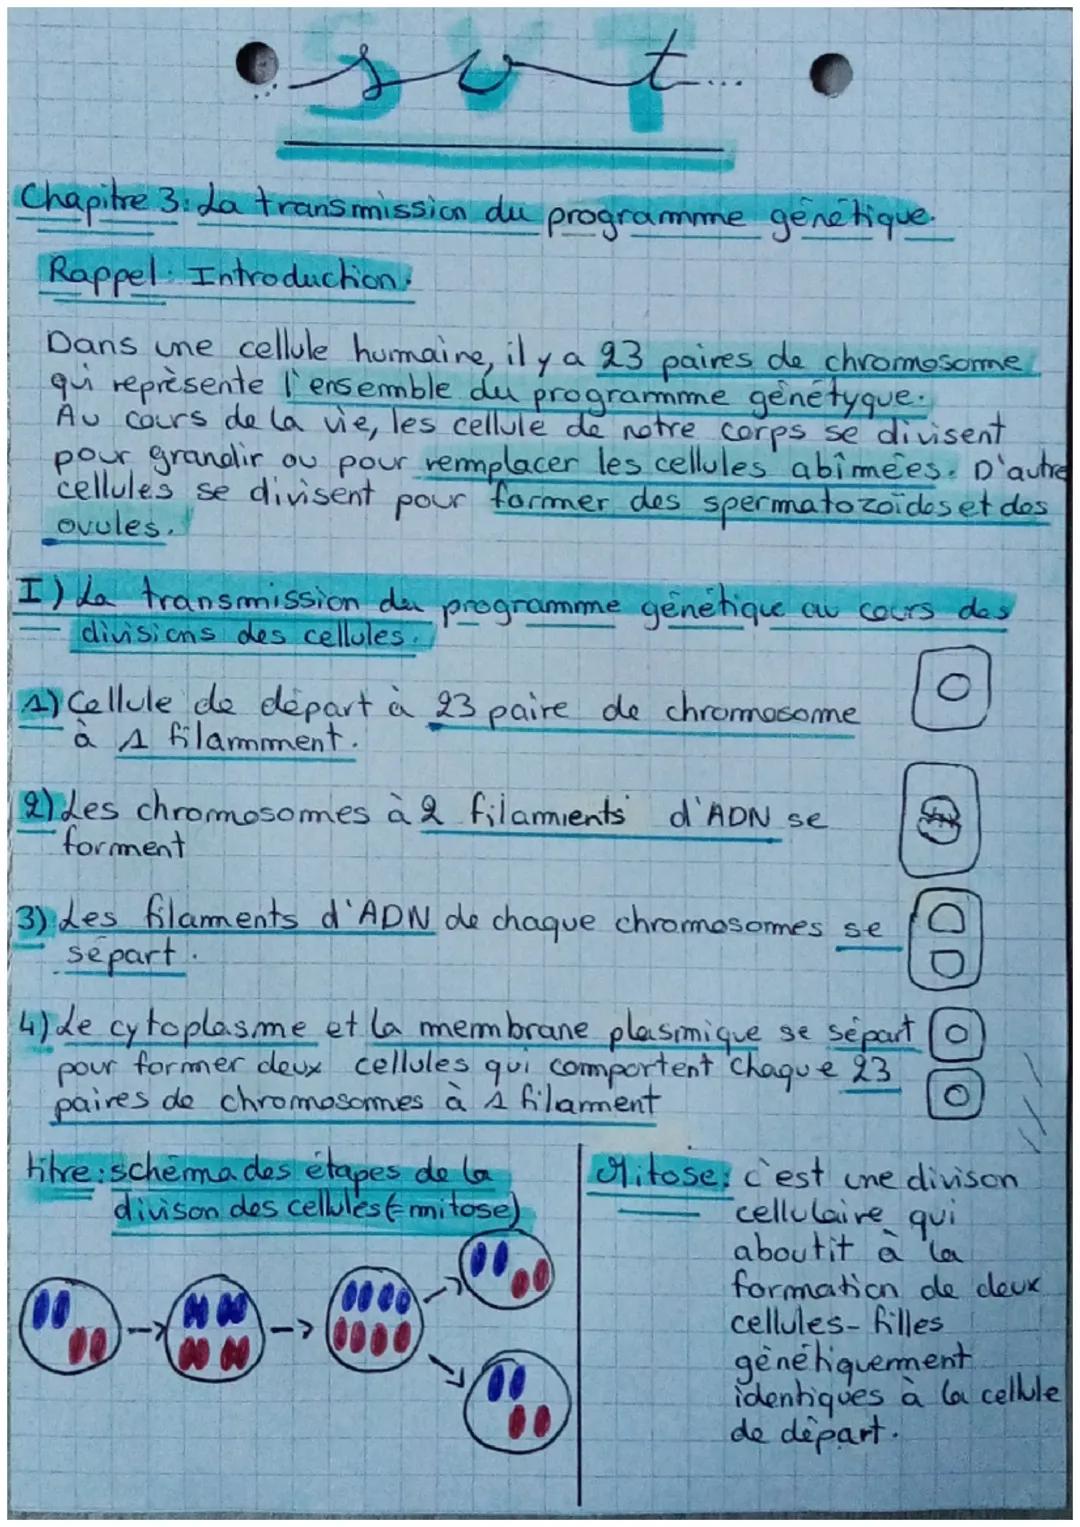 SVT
svt...
Chapitre 3: La transmission du programme génétique.
Rappel: Introduction:
Dans une cellule humaine, il y a 23 paires de chromosome
qui représente l'ensemble du programme génétyque.
Au cours de la vie, les cellule de notre corps se divisent
pour grandir ou pour remplacer les cellules abîmées. D'autre
cellules se divisent pour former des spermatozoïdes et des
ovules.
I) La transmission du programme génétique au cours des
divisions des cellules.
1) Cellule de départ à 23 paire de chromosome
à 1 filamment.
2) Les chromosomes à 2 filaments d'ADN se
forment
3) Les filaments d'ADN de chaque chromosomes se
sépart.
4) Le cytoplasme et la membrane plasmique se sépart
pour former deux cellules qui comportent chaque 23
paires de chromosomes à 1 filament
titre: schéma des étapes de la
divison des cellules (= mitose)
Mitose: c'est une divison
cellulaire qui
aboutit à la
formation de deux
cellules-filles
génétiquement
identiques à la cellule
de départ.